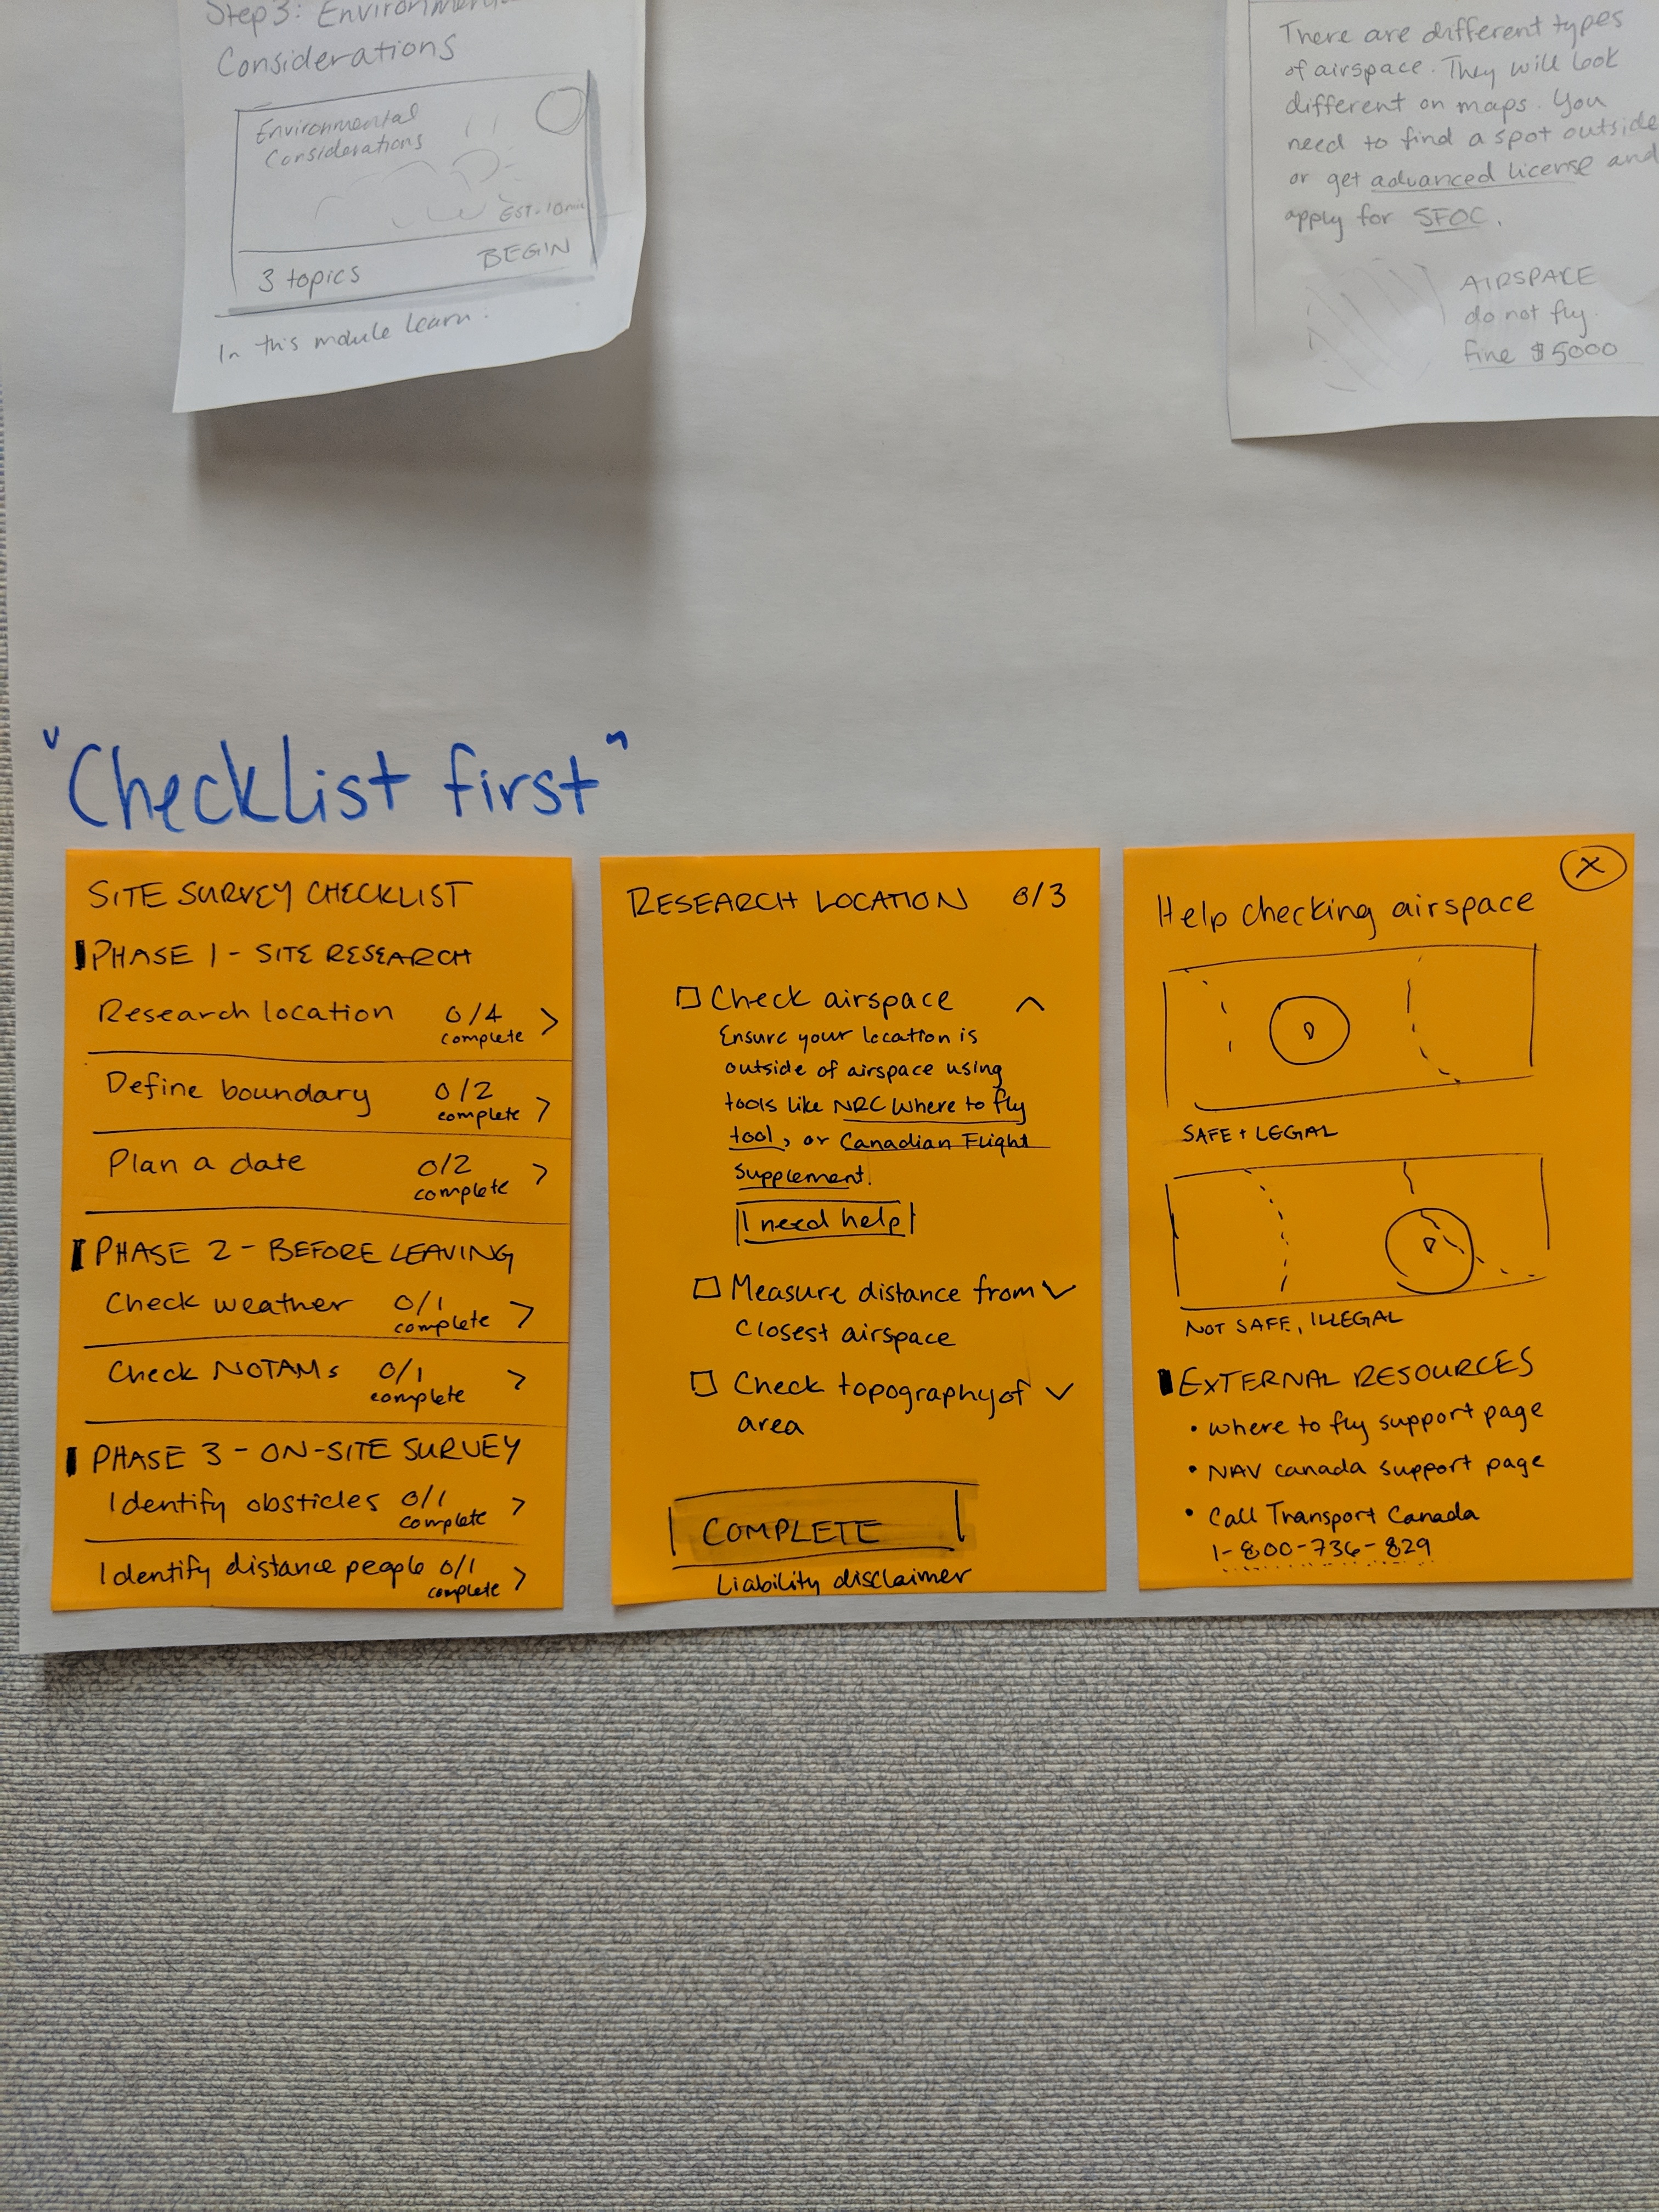 Step 3: Environmental
Considerations
Environmental
Considerations
EST. 10min
3 topics
BEGIN
In this module learn:
There are different types
of airspace. They will look
different on maps. You
need to find a spot outside
or get advanced license and
apply for SFOC.
AIRSPACE
do not fly
fine $5000
"Checklist first"
SITE SURVEY CHECKLIST
PHASE 1 - SITE RESEARCH
Research location 0/4
complete >
Define boundary 0/2
complete >
Plan a date 0/2
complete >
PHASE 2 - BEFORE LEAVING
Check weather 0/1
complete >
Check NOTAMs 0/1
complete >
PHASE 3 - ON-SITE SURVEY
Identify obsticles 0/1
complete >
Identify distance people 0/1
complete >
RESEARCH LOCATION 0/3
Check airspace
Ensure your location is
outside of airspace using
tools like NRC Where to fly
tool, or Canadian Flight
Supplement.
I need help
Measure distance from
Closest airspace
Check topography of
area
COMPLETE
Liability disclaimer
X
Help checking airspace
SAFE + LEGAL
NOT SAFE, ILLEGAL
EXTERNAL RESOURCES
• where to fly support page
• NAV canada support page
• Call Transport Canada
1-800-736-829